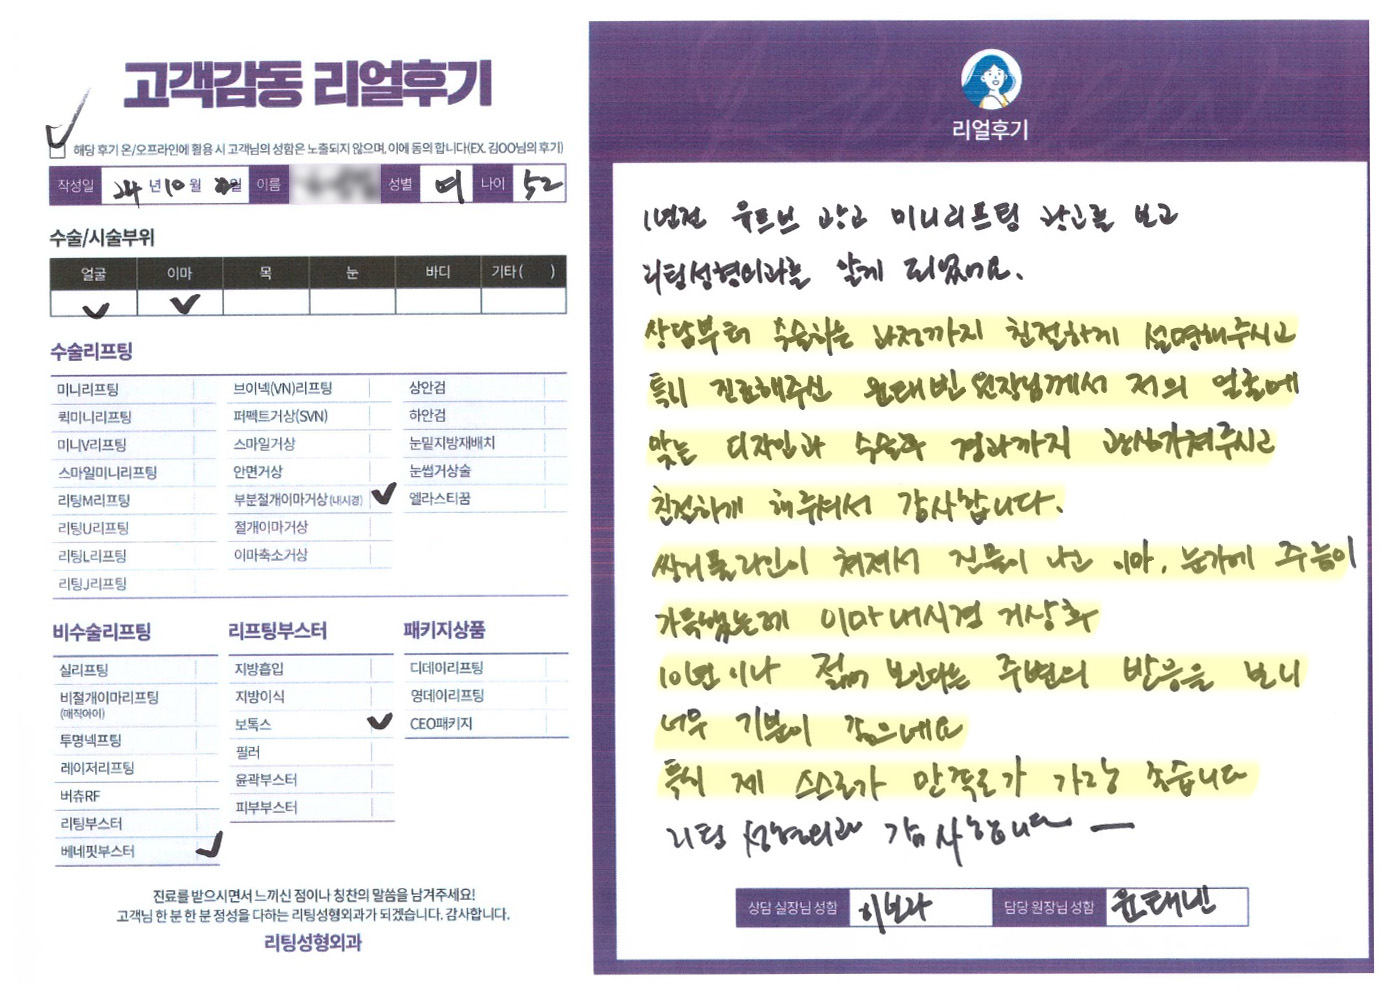 고객감동 리얼후기
해당 후기 온/오프라인에 활용 시 고객님의 성함은 노출되지 않으며, 이에 동의 합니다(EX. 김OO님의 후기)
작성일 24 년 10 월 일 이름 성별 여 나이 52
수술/시술부위
얼굴 이마 목 눈 바디 기타 ( )
수술리프팅
미니리프팅 브이넥(VN)리프팅 상안검
퀵미니리프팅 퍼펙트거상(SVN) 하안검
미니V리프팅 스마일거상 눈밑지방재배치
스마일미니리프팅 안면거상 눈썹거상술
리팅M리프팅 부분절개이마거상(내시경) 엘라스티꿈
리팅U리프팅 절개이마거상
리팅L리프팅 이마축소거상
리팅J리프팅
비수술리프팅 리프팅부스터 패키지상품
실리프팅 지방흡입 디데이리프팅
비절개이마리프팅 지방이식 영데이리프팅
(매직아이)
투명넥프팅 보톡스 CEO패키지
레이저리프팅 필러
버츄RF 윤곽부스터
리팅부스터 피부부스터
베네핏부스터
진료를 받으시면서 느끼신 점이나 칭찬의 말씀을 남겨주세요!
고객님 한 분 한 분 정성을 다하는 리팅성형외과가 되겠습니다. 감사합니다.
리팅성형외과
리얼후기
1년전 유트브 광고 미니리프팅 광고를 보고
리팅성형외과를 알게 되었어요.
상담부터 수술하는 과정까지 친절하게 설명해주시고
특히 진료해주신 윤태빈 원장님께서 저의 얼굴에
맞는 디자인과 수술후 경과까지 관심가져주시고
친절하게 해주셔서 감사합니다.
쌍거풀라인이 쳐져서 진물이 나고 이마, 눈가에 주름이
가득했는데 이마내시경 거상후
10년이나 젊어 보인다는 주변의 반응을 보니
너무 기분이 좋으네요
특히 제 스스로가 만족도가 가장 좋습니다
리팅 성형외과 감사합니다 ―
상담 실장님 성함 이보라 담당 원장님 성함 윤태빈